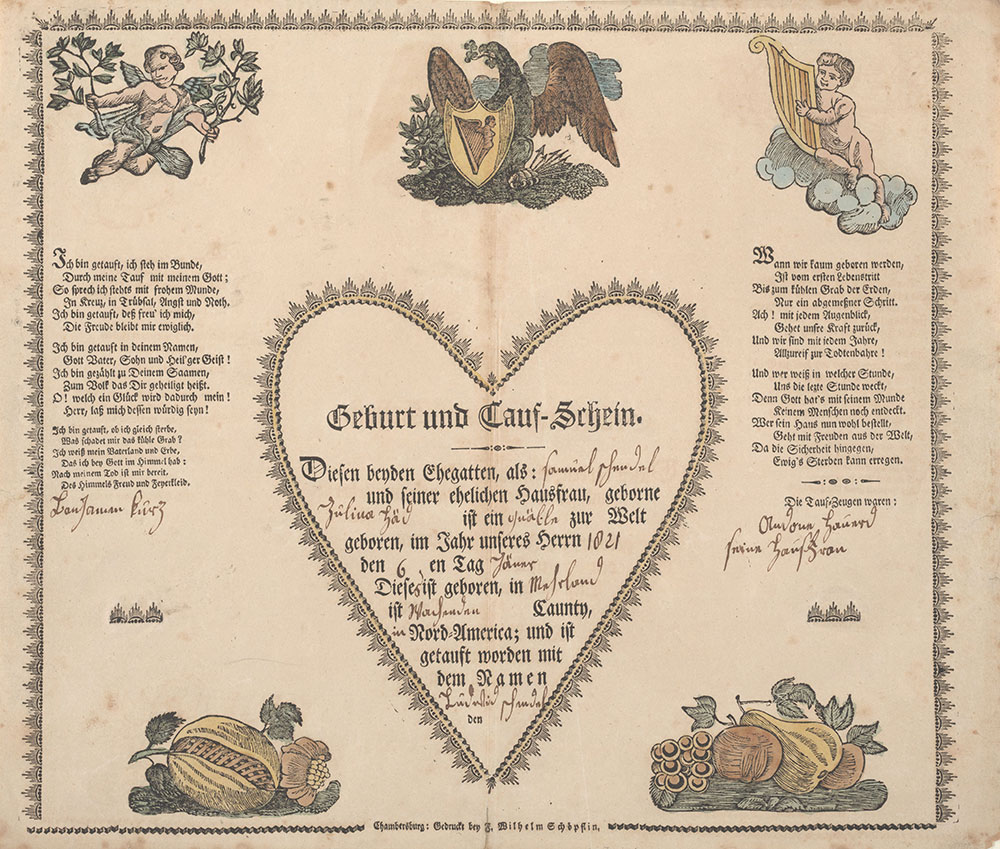 Ich bin getauft, ich steh im Bunde,
Durch meine Tauf mit meinem Gott;
So sprech ich stehts mit frohem Munde,
In Kreuz, in Trübsal, Angst und Noth.
Ich bin getauft, deß freu' ich mich,
Die Freude bleibt mir ewiglich.
Ich bin getauft in deinem Namen,
Gott Vater, Sohn und Heil'ger Geist!
Ich bin gezählt zu Deinem Saamen,
Zum Volk das Dir geheiligt heißt.
O! welch ein Glück wird dadurch mein!
Herr, laß mich dessen würdig seyn!
Ich bin getauft, ob ich gleich sterbe,
Was schadet mir das kühle Grab?
Ich weiß mein Vaterland und Erbe,
Das ich bey Gott im Himmel hab:
Nach meinem Tod ist mir bereit.
Des Himmels Freud und Feyerkleid.
Benjamen Kurz
Geburt und Tauf-Schein.
Diesen beyden Ehegatten, als: samuel schendel
und seiner ehelichen Hausfrau, geborne
Julina Häd ist ein zur Welt
geboren, im Jahr unseres Herrn 1821
den 6 en Tag Jäner
Dieses ist geboren, in Mehrland
ist Wachenden Caunty,
in Nord-America; und ist
getauft worden mit
dem Namen
Ludwid schendel
den
Wann wir kaum geboren werden,
Ist vom ersten Lebenstritt
Bis zum kühlen Grab der Erden,
Nur ein abgemeßner Schritt.
Ach! mit jedem Augenblick,
Gehet unsre Kraft zurück,
Und wir sind mit jedem Jahre,
Allzureif zur Todtenbahre!
Und wer weiß in welcher Stunde,
Uns die lezte Stunde weckt,
Denn Gott hat's mit seinem Munde
Keinem Menschen noch entdeckt.
Wer sein Haus nun wohl bestellt,
Geht mit Freuden aus der Welt,
Da die Sicherheit hingegen,
Ewig's Sterben kann erregen.
Die Tauf-Zeugen waren:
Andone Hauerd
seine Hausfrau
Chambersburg: Gedruckt bey F. Wilhelm Schöpflin.